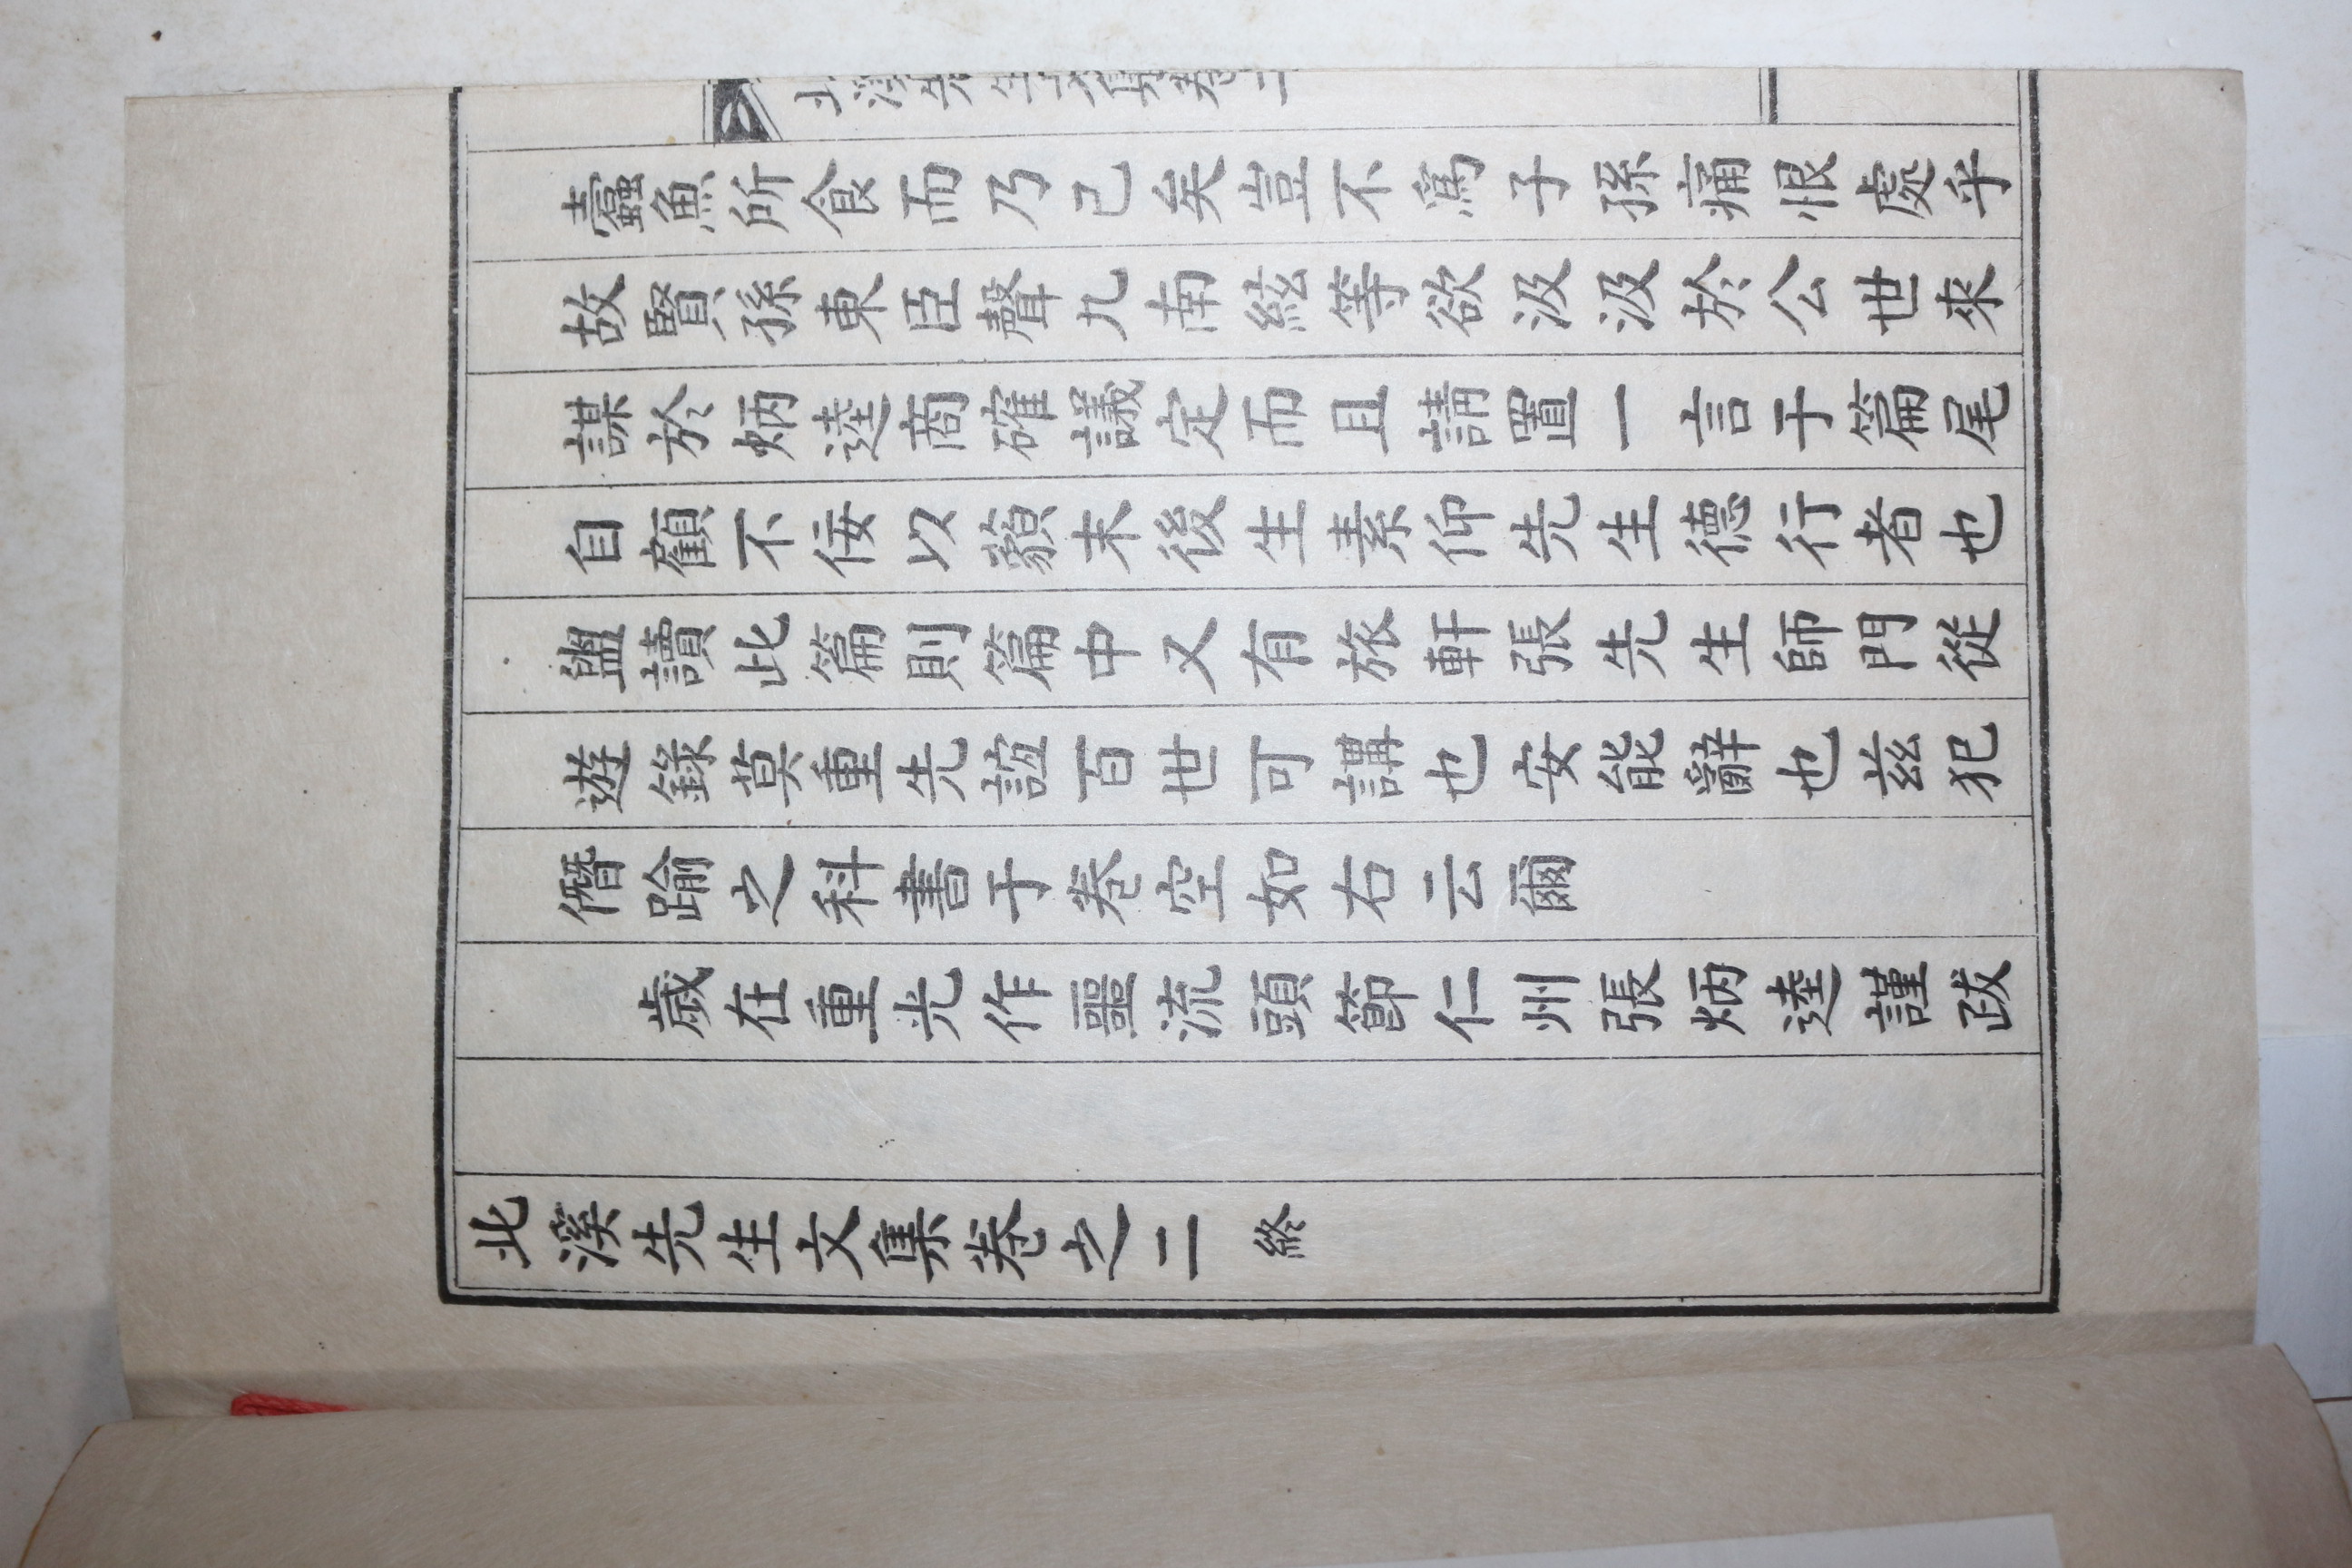 北溪先生文集卷二
蠧魚所食而乃已矣豈不爲子孫痛恨處乎
故賢孫東臣聲九南絃等欲汲汲於公世來
謀於炳逵商確議定而且請置一言于篇尾
自顧不佞以藐末後生素仰先生德行者也
盥讀此篇則篇中又有旅軒張先生師門從
遊錄莫重先誼百世可講也安能辭也茲犯
僭踰之科書于卷空如右云爾
歲在重光作噩流頭節仁州張炳逵謹跋
北溪先生文集卷之二 終